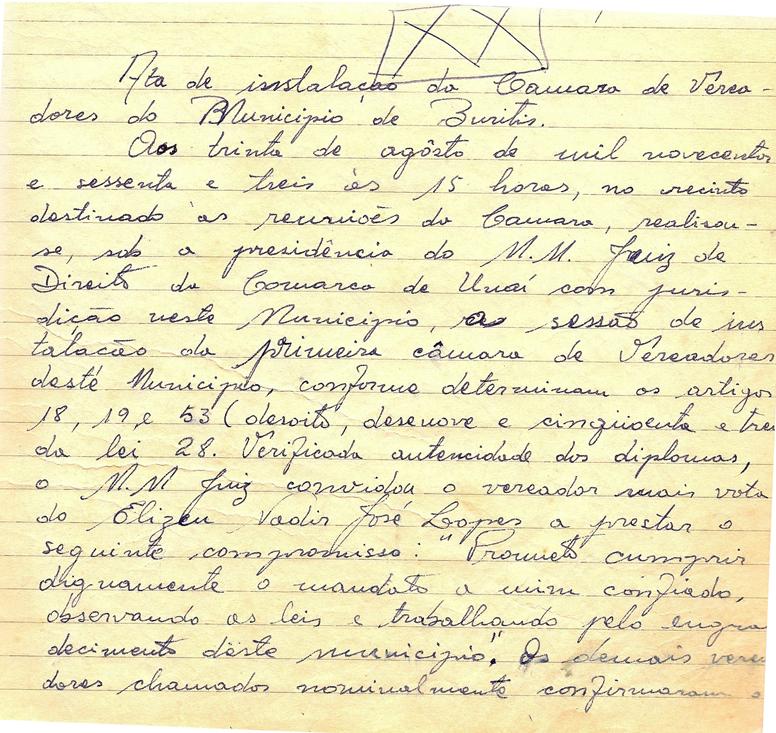 Ata de instalação da Camara de Verea-
dores do Municipio de Buritis.
Aos trinta de agôsto de mil novecentos
e sessenta e treis às 15 hores, no recinto
destinado às reuniões da Camara, realisou-
se, sob a presidência do M.M. Juiz de
Direito da Comarca de Unaí com juris-
dição neste Municipio, a sessão de ins
talacão da primeira câmara de Vereadores
deste Municipio, conforme determinam os artigos
18, 19, e 53 (desoito, desenove e cinqüoenta e treis
da lei 28. Verificada autencidade dos diplomas,
o M.M Juiz convidou o vereador mais vota
do Elizeu Vadir José Lopes a prestar o
seguinte compromisso: "Prometo cumprir
dignamente o mandato a mim confiado,
observando as leis e trabalhando pelo engra
decimento dêste municipio". Os demais verea
dores chamados nominalmente confirmaram o